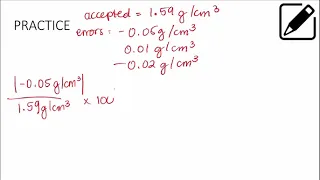 PRACTICE
accepted = 1.59 g/cm³
errors: - 0.05g/cm³
0.01 g/cm³
- 0.02 g/cm³
|-0.05g/cm³|
1.59g/cm³
× 100